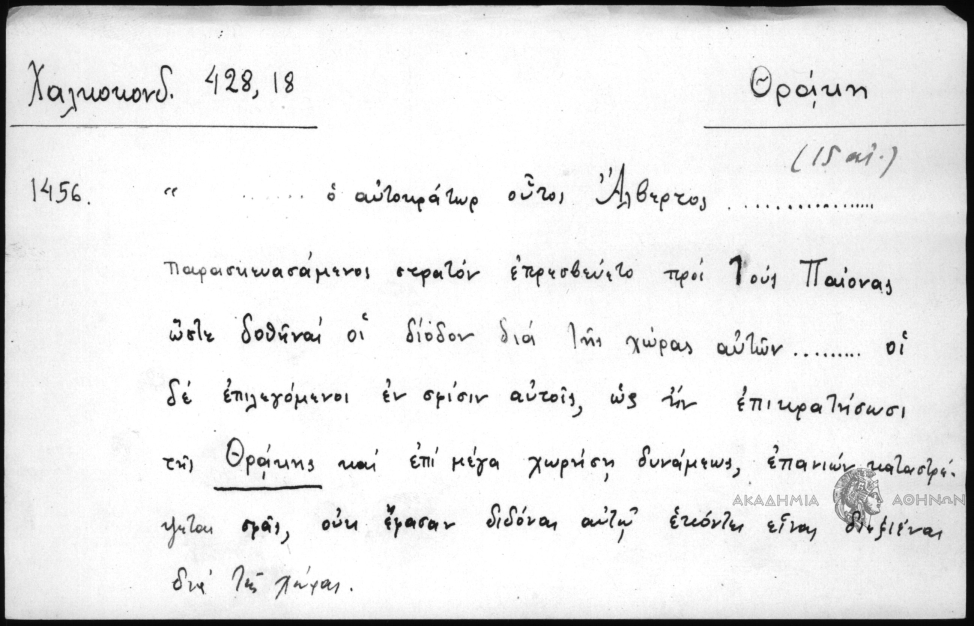 Χαλκοκονδ. 428, 18
Θρᾴκη
(15 αἰ.)
1456. “ ...... ὁ αὐτοκράτωρ οὗτος Ἄλβερτος ..................
παρασκευασάμενος στρατόν ἐπρεσβεύετο πρός τούς Παίονας
ὥστε δοθῆναί οἱ δίοδον διά τῆς χώρας αὐτῶν ......... οἱ
δέ ἐπιλεγόμενοι ἐν σφίσιν αὐτοῖς, ὡς ἤν ἐπικρατήσωσι
τῆς Θρᾴκης καί ἐπί μέγα χωρήσῃ δυνάμεως, ἐπανιών καταστρέ-
ψεται σφᾶς, οὐκ ἔφασαν διδόναι αὐτῷ ἑκόντες εἶναι διεξιέναι
διά τῆς χώρας.
ΑΚΑΔΗΜΙΑ ΑΘΗΝΩΝ